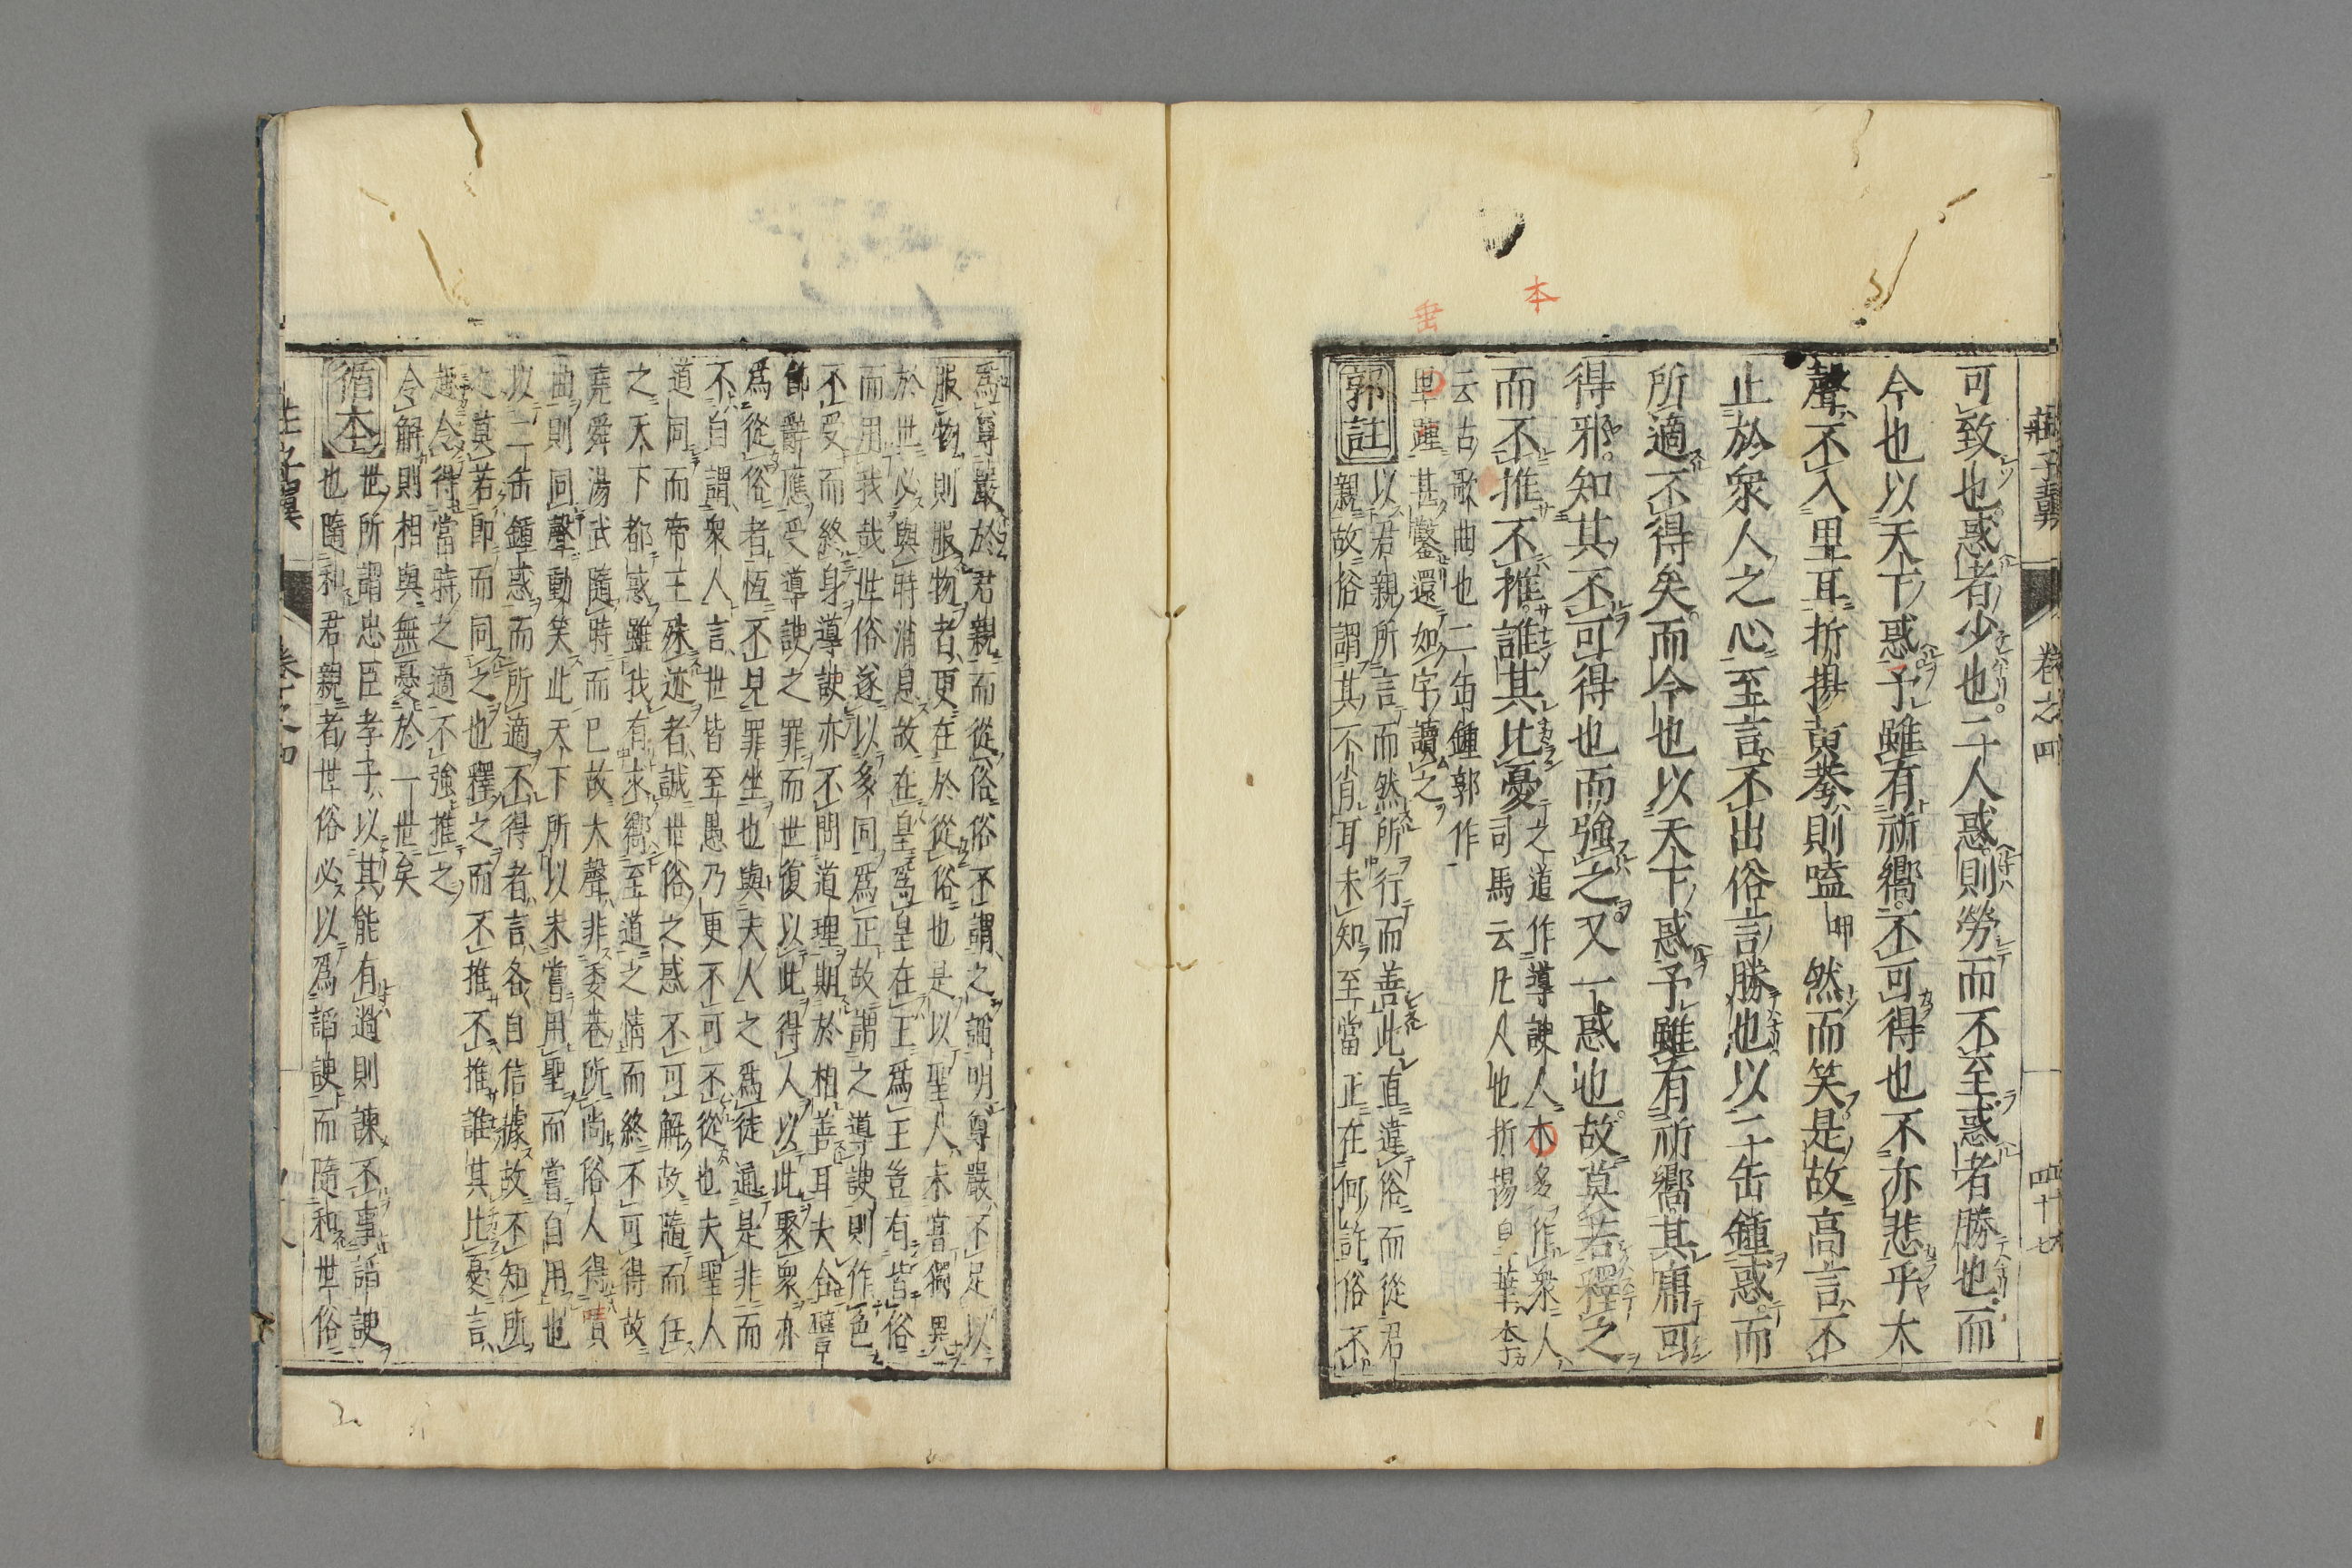 莊子翼 卷之四 四十七
可致也惑者少也二人惑則勞而不至惑者勝也而
今也以天下惑予雖有祈嚮不可得也不亦悲乎大
聲不入里耳折揚皇荂則嗑呷然而笑是故高言不
止於衆人之心至言不出俗言勝也以二缶鍾惑而
所適不得矣而今也以天下惑予雖有祈嚮其庸可
得邪知其不可得也而強之又一惑也故莫若釋之
而不推不推誰其比憂
之道作導諛人木多作衆人
司馬云凡人也折揚皇華本
云古歌曲也二缶鍾郭作
甚鑿還如字讀之
本
郭註
以君親所言而然所行而善此直違俗而從君
親故俗謂其不肖耳未知至當正在何許俗不
爲尊嚴於君親而從俗俗不謂之諂明尊嚴不足以
服物則服物者更在於從俗也是以聖人未嘗獨異
於世必與時消息故在皇爲皇在王爲王豈有背俗
而用我哉世俗遂以多同爲正故謂之導諛則作色
不受而終身導諛亦不問道理期於相善耳夫合譬
飾辭應受導諛之罪而世復以此得人以此聚衆亦
爲從俗者恆不見罪坐也與夫人之爲徒通是非而
不自謂衆人言世皆至愚乃更不可不從也夫聖人
道同而帝王殊迹者誠世俗之惑不可解故隨而任
之天下都惑雖我有求嚮至道之情而終不可得故
堯舜湯武隨時而已故大聲非委巷所尚俗人得嘖
曲則同聲動笑此天下所以未嘗用聖而嘗自用也
以二缶鍾惑而所適不得者言各自信據故不知所
從莫若即而同之也釋之而不推不推誰其比憂言
趣令得當時之適不強推之
令解則相與無憂於一世矣
循本
世所謂忠臣孝子以其能有過則諫不事諂諛
也隨和君親者世俗必以爲諂諛而隨和世俗
莊子翼 卷之四